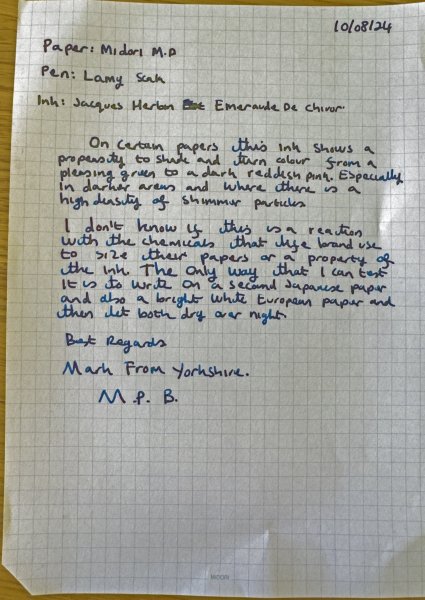 10/08/24
Paper: Midori M.D
Pen: Lamy
Ink: Jacques Herbin Emeraude De Chivor.
On certain papers this ink shows a
propensity to shade and turn colour from a
pleasing green to a dark reddish pink. Especially
in darker areas and where there is a
high density of shimmer particles
I don't know if this is a reaction
with the chemicals that the brand use
to size their papers or a property of
the ink. The only way that I can test
it is to write on a second Japanese paper
and also a bright white European paper and
then let both dry over night.
Best Regards
Mark From Yorkshire.
M.P.B.
MIDORI